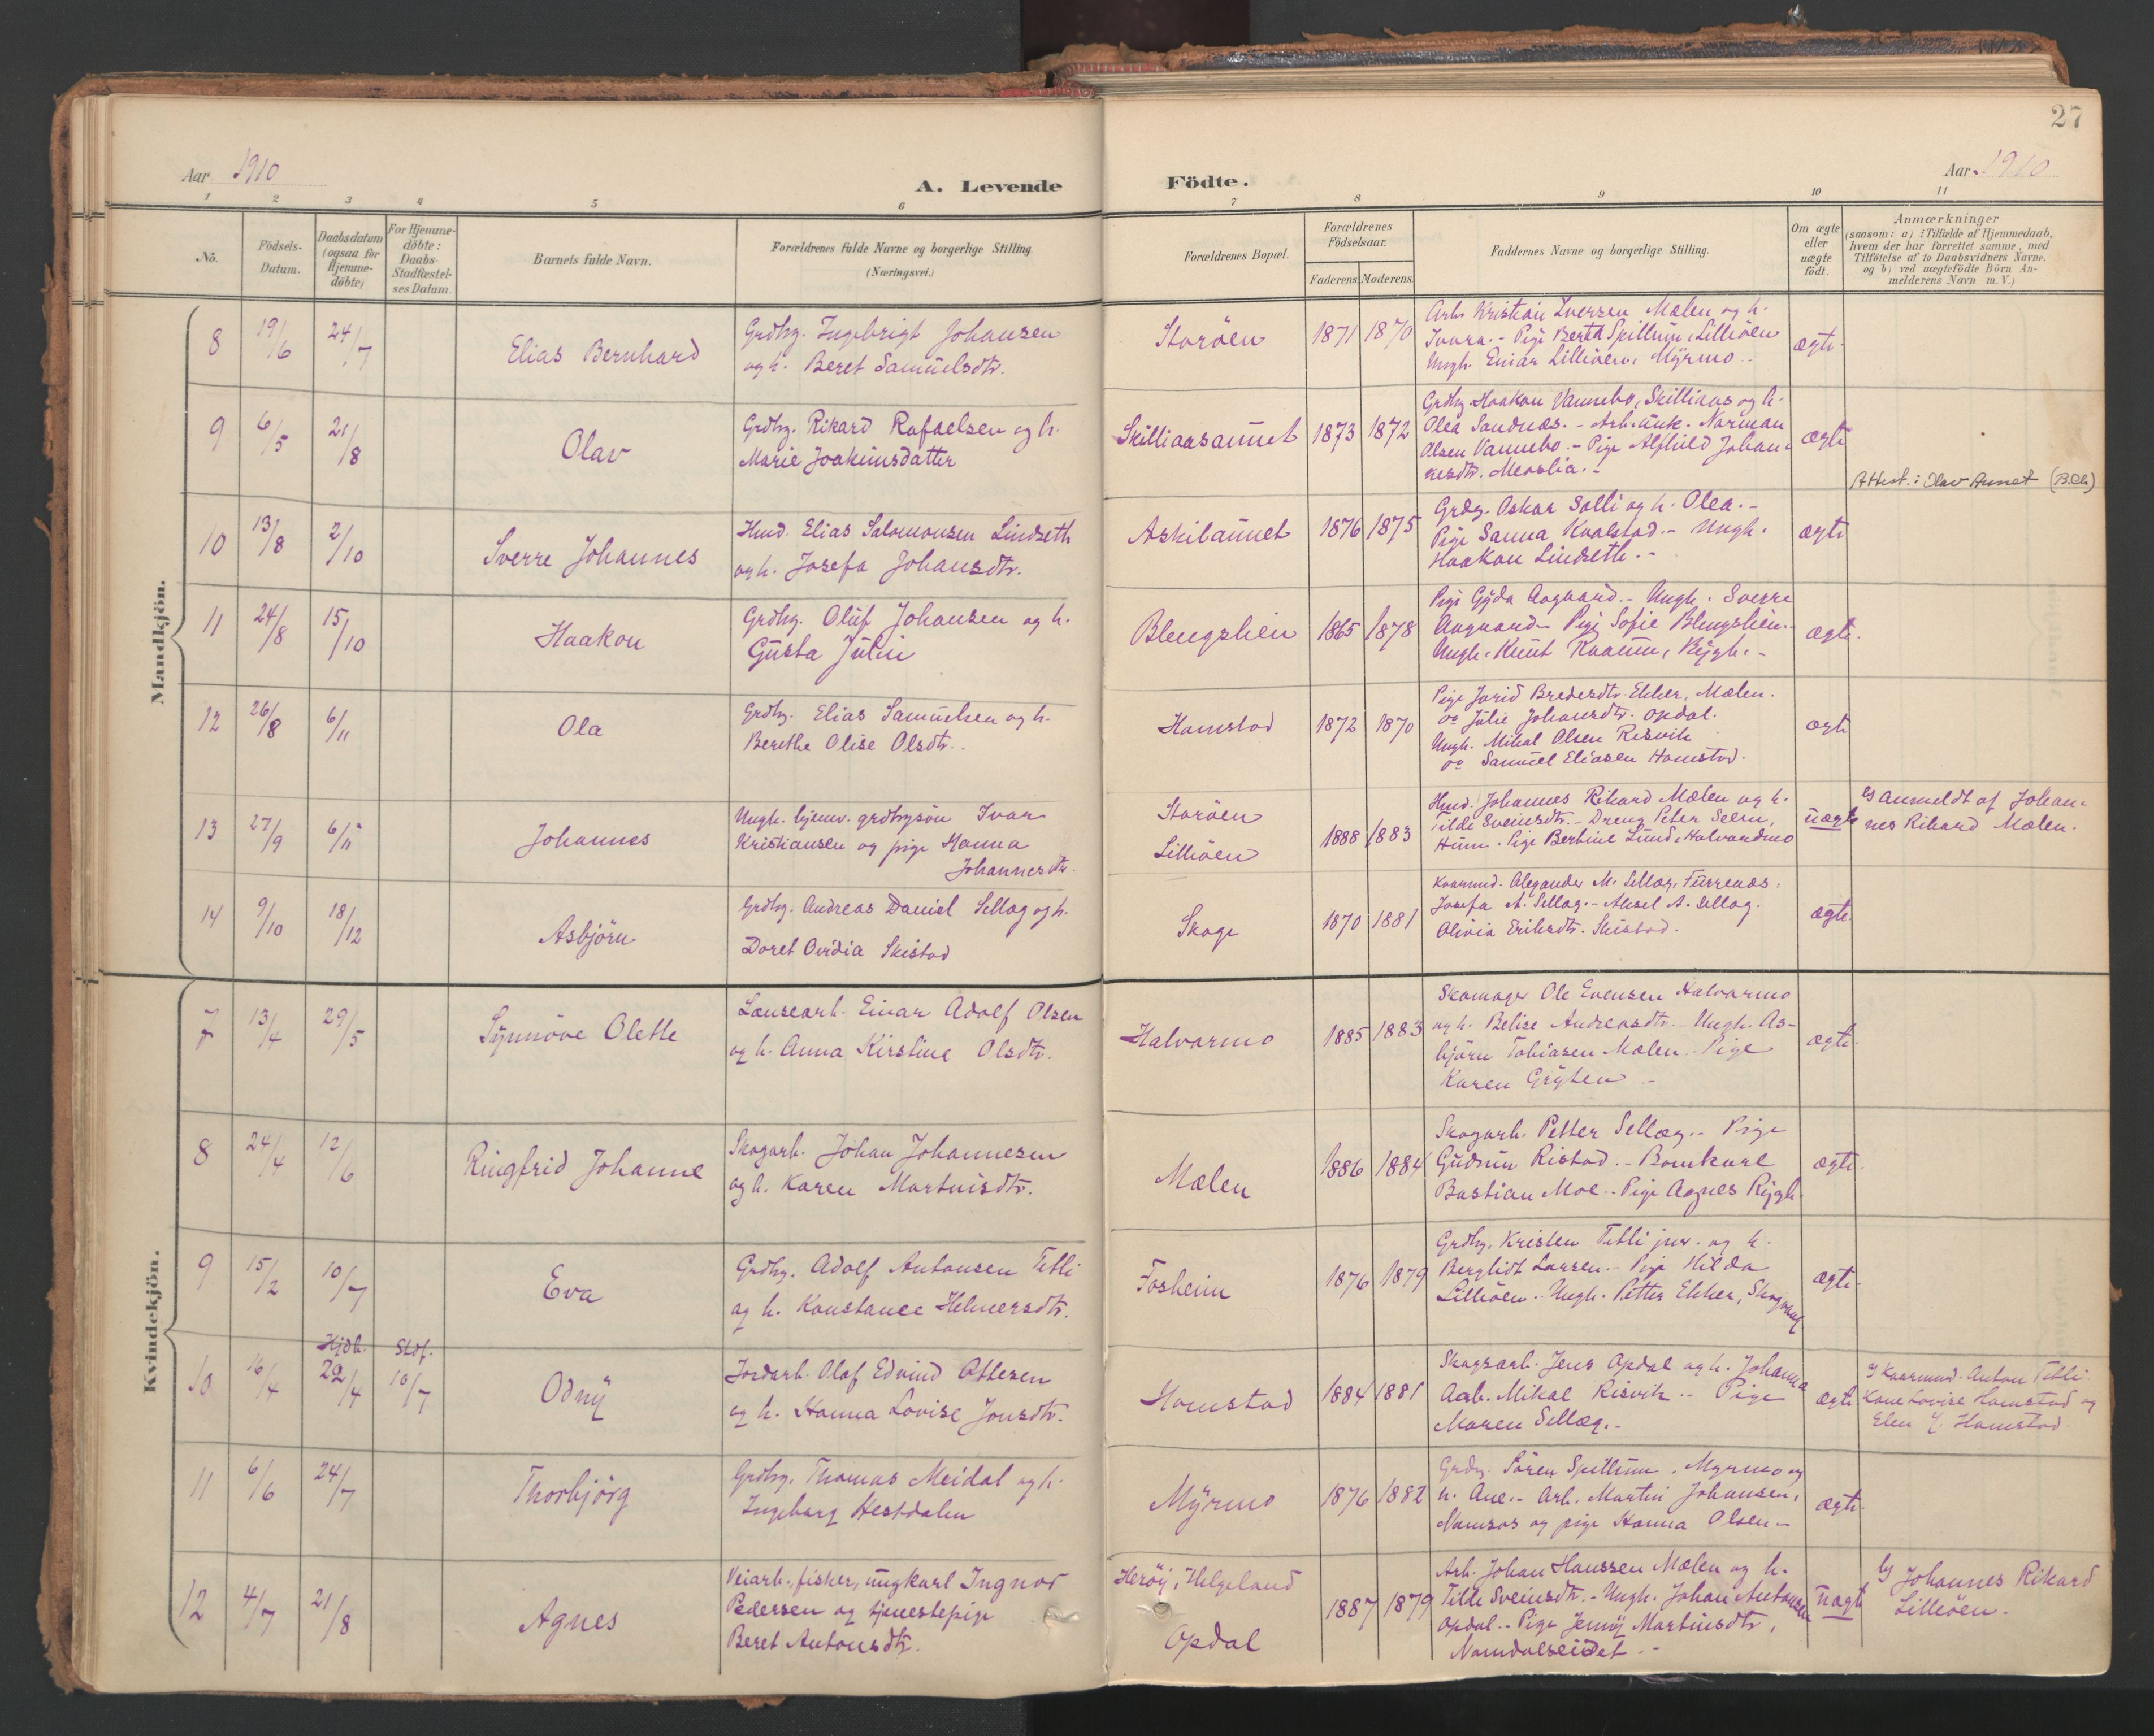 27
Aar 1910
A. Levende
Födte.
Aar 1910
1 2 3 4 5 6 7 8 9 10 11
No.
Födsels-
Datum.
Daabsdatum
(ogsaa for
Hjemme-
döbte)
For Hjemme-
döbte:
Daabs-
Stadfæstel-
ses Datum.
Barnets fulde Navn.
Forældrenes fulde Navne og borgerlige Stilling
(Næringsvei.)
Forældrenes Bopæl.
Forældrenes
Födselsaar.
Faderens. Moderens.
Faddernes Navne og borgerlige Stilling.
Om ægte
eller
uægte
födt.
Anmærkninger
(saasom: a) i Tilfælde af Hjemmedaab,
hvem der har forrettet samme, med
Tilföielse af to Daabsvidners Navne,
og b) ved uægtefödte Börn An-
melderens Navn m.V.)
Mandkjön.
8 19/6 24/7 Elias Bernhard
Grdbg. Ingebrigt Johansen
og h. Beret Samuelsdtr.
Storöen 1871 1870
Arb. Kristian Iversen Mælen og h.
Ivara. - Pige Berta Spillum, Lilleöen
Ungk. Einar Lilleöen, Myrmo. -
ægte
9 6/5 21/8 Olav
Grdbg. Rikard Rafaelsen og h.
Marie Joakimsdatter
Skilliaasaunet 1873 1872
Grdbg. Haakon Vannebo, Skilliaas og h.
Olea Sandnes. - Arb. enk. Norman
Olsen Vannebo. - Pige Alfhild Johan-
nesdtr. Meoslia. -
ægte
Attest.: Olav Aunet
10 13/8 2/10 Sverre Johannes
Hmd. Elias Salomonsen Lindseth
og h. Josefa Johansdtr.
Askilaunet 1876 1875
Grdbg. Oskar Solli og h. Olea. -
Pige Sanna Kvalstad. - Ungk.
Haakon Lindseth. -
ægte
11 24/8 15/10 Haakon
Grdbg. Oluf Johansen og h.
Gusta Julin
Blengslien 1865 1878
Pige Gyda Aagaard. - Ungk. Sverre
Aagaard - Pige Sofie Blengslien. -
Ungk. Knut Raaum, Rygh. -
ægte.
12 26/8 6/11 Ola
Grdbg. Elias Samuelsen og h.
Berethe Olise Olsdtr.
Homstad 1872 1870
Pige Jorid Bredesdtr. Ekker, Mælen.
do Julie Johansdtr. Opdal.
Ungk. Mikal Olsen Risvik
do Samuel Eliasen Homstad.
ægte
13 27/9 6/11 Johannes
Ungk. hjemv. grdbrsön Ivar
Kristiansen og pige Hanna
Johannesdtr.
Storöen
Lilleöen
1888 1883
Hmd. Johannes Rikard Mælen og h.
Tilde Sveinsdtr. - Dreng Peter Seem,
Hunn. Pige Berbine Lund, Halvardmo
uægte
b) Anmeldt af Johan-
nes Rikard Mælen.
14 9/10 18/12 Asbjörn
Grdbg. Andreas Daniel Sellæg og h.
Doret Ovidia Skistad
Skage 1870 1881
Kaarmd. Alexander M. Sellæg, Furrenes:
Josefa A. Sellæg. - Aksel A. Sellæg.
Olivia Eriksdtr. Skistad.
ægte.
Kvindekjön.
7 13/4 29/5 Synnöve Olette
Lensearb. Einar Adolf Olsen
og h. Anna Kirstine Olsdtr.
Halvarmo 1885 1883
Skomager Ole Evensen Halvarmo
og h. Belise Andreasdtr. - Ungk. As-
björn Tobiasen Mælen. - Pige
Karen Grÿten -
ægte.
8 24/4 12/6 Ringfrid Johanne
Skogarb. Johan Johannesen
og h. Karen Martinisdtr.
Mælen 1886 1884
Skogarb. Petter Sellæg. - Pige
Gudrun Ristad. - Bomkarl
Bastian Moe. - Pige Agnes Rygh
ægte.
9 15/2 10/7 Eva
Grdbg. Adolf Antonsen Tetli
og h. Konstance Helmersdtr.
Fosheim 1876 1879
Grdbg. Kristen Tetli jnr. og h.
Bergliot Larsen. - Pige Hilda
Lilleöen. - Ungk. Petter Ekker,
ægte.
10 16/4 Hjdb. 29/4 Stdf. 10/7 Odny
Jordarb. Olaf Edvind Ottesen
og h. Hanna Lovise Jonsdtr.
Homstad 1884 1881
Skogsarb. Jens Opdal og h. Johanna
Arb. Mikal Risvik. - Pige
Maren Sellæg. -
ægte
a) Kaarmand. Anton Tetli.
Kone Lovise Homstad og
Elen Homstad.
11 6/6 24/7 Thorbjörg
Grdbg. Thomas Meidal og h.
Ingeborg Hestdalen
Myrmo 1876 1882
Grdbg. Sören Spillum, Myrmo og
h. Ane. - Arb. Martin Johansen,
Namsos og pige Hanna Olsen -
ægte.
12 4/7 21/8 Agnes
Veiarb., fisker, ungkarl Ingvor
Pedersen og tjenestepige
Beret Antonsdtr.
Heröy, Helgeland
Opdal
1887 1879
Arb. Johan Hanssen Mælen og h.
Tilde Sveinsdtr. - Ungk. Johan Antonsen
Opdal. - Pige Jenny Martinsdtr,
Namdalseidet. -
uægte
b) Johannes Rikard
Lilleöen.